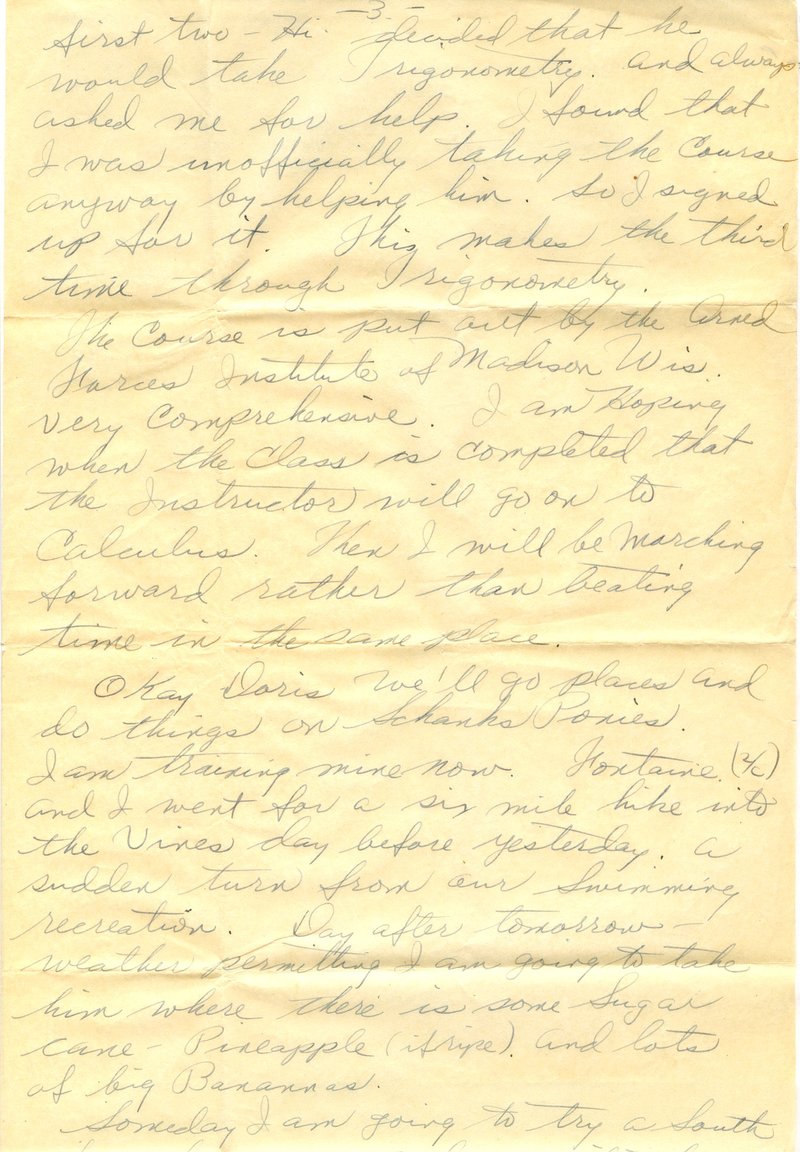 -3-
first two - Hi. decided that he
would take Trigonometry. and always
asked me for help. I found that
I was unofficially taking the Course
anyway by helping him. So I signed
up for it. This makes the third
time through Trigonometry.
The Course is put out by the Armed
Forces Institute of Madison Wis.
Very Comprehensive. I am Hoping
when the Class is completed that
the Instructor will go on to
Calculus. Then I will be Marching
forward rather than beating
time in the same place.
OKay Doris we'll go places and
do things on Schanks Ponies.
I am training mine now. Fontaine (2/c)
and I went for a six mile hike into
the Vines day before yesterday. a
sudden turn from our Swimming
recreation. Day after tomorrow -
weather permitting I am going to take
him where there is some Sugar
cane - Pineapple (if ripe). and lots
of big Banannas.
Someday I am going to try a South